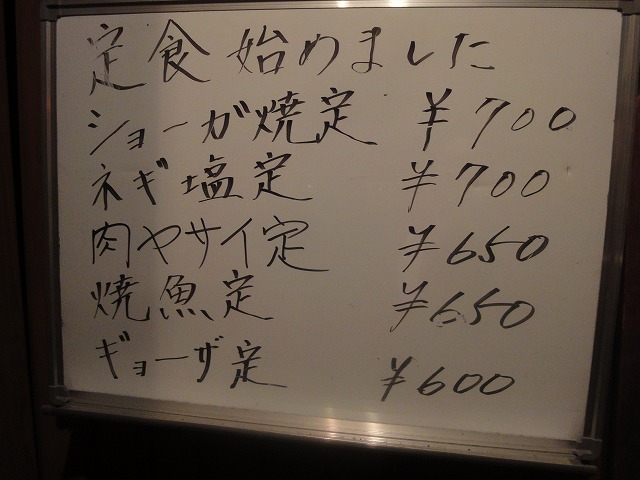 定食 始めました
ショーガ焼定 ¥700
ネギ塩定 ¥700
肉ヤサイ定 ¥650
焼魚定 ¥650
ギョーザ定 ¥600